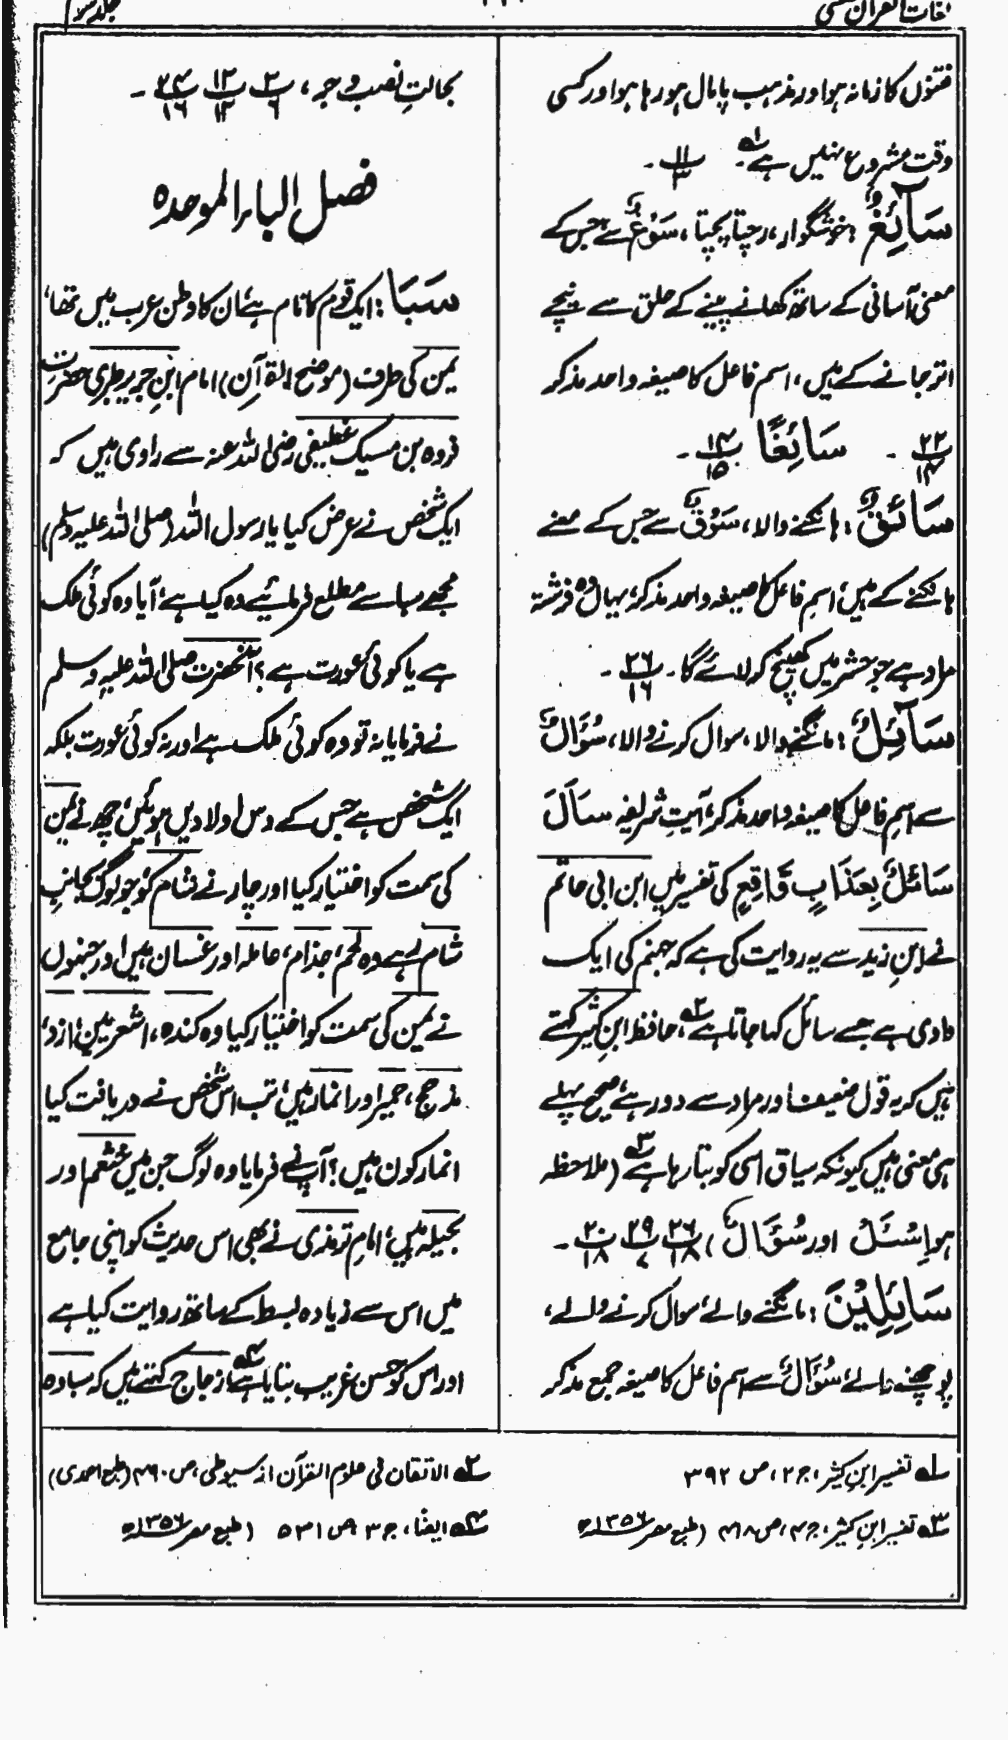 لغات القرآن
جلد سوم
فتنوں کا زمانہ ہو اور مذہب پامال ہو رہا ہو اور کسی
وقت مشروع نہیں ہے۔ ۱؎ ۱۱/۳ ۔
سَآئِغٌ : خوشگوار، رچتا پچتا، سَوْغٌ سے جس کے
معنی آسانی کے ساتھ کھانے پینے کے حلق سے نیچے
اتر جانے کے ہیں، اسم فاعل کا صیغہ واحد مذکر
۲۲/۱۴ ۔ سَائِغًا ۱۴/۱۵ ۔
سَائِقٌ : ہانکنے والا، سَوْقٌ سے جس کے معنے
ہانکنے کے ہیں، اسمِ فاعل کا صیغہ واحد مذکر، یہاں وہ فرشتہ
مراد ہے جو حشر میں کھینچ کر لائے گا۔ ۲۶/۱۶ ۔
سَآئِلٌ : مانگنے والا، سوال کرنے والا، سُؤَالٌ
سے اسمِ فاعل کا صیغہ واحد مذکر، آیتِ شریفہ سَاَلَ
سَائِلٌ بِعَذَابٍ وَّاقِعٍ کی تفسیر میں ابن ابی حاتم
نے ابنِ زید سے یہ روایت کی ہے کہ جہنم کی ایک
وادی ہے جسے سائل کہا جاتا ہے ۲؎، حافظ ابنِ کثیر کہتے
ہیں کہ یہ قول ضعیف اور مراد سے دور ہے، صحیح پہلے
ہی معنی ہیں کیونکہ سیاق اسی کو بتا رہا ہے ۳؎ (ملاحظہ
ہو اِسْئَلْ اور سُؤَالٌ)، ۲۶/۱۸ ۲۹/۷ ۳۰/۱۸ ۔
سَائِلِیْنَ : مانگنے والے، سوال کرنے والے،
پوچھنے والے، سُؤَالٌ سے اسم فاعل کا صیغہ جمع مذکر
بحالتِ نصب و جر، ۲/۶ ۱۲/۱۲ ۲۴/۱۶ ۔
فصل الباء الموحدہ
سَبَا : ایک قوم کا نام ہے، ان کا وطن عرب میں تھا،
یمن کی طرف (موضح القرآن) امام ابنِ جریر طبری حضرت
فروہ بن مسیک غطیفی رضی اللہ عنہ سے راوی ہیں کہ
ایک شخص نے عرض کیا یا رسول اللہ (صلی اللہ علیہ وسلم)
مجھے سبا سے مطلع فرمائیے وہ کیا ہے، آیا وہ کوئی ملک
ہے یا کوئی عورت ہے؟ آنحضرت صلی اللہ علیہ و سلم
نے فرمایا نہ تو وہ کوئی ملک ہے اور نہ کوئی عورت بلکہ
ایک شخص ہے جس کے دس اولادیں ہوئیں، چھ نے یمن
کی سمت کو اختیار کیا اور چار نے شام کو، جو لوگ بجانبِ
شام رہے وہ لخم، جذام، عاملہ اور غسان ہیں اور جنہوں
نے یمن کی سمت کو اختیار کیا وہ کندہ، اشعریین، ازد،
مذحج، حمیر اور انمار ہیں، تب اس شخص نے دریافت کیا
انمار کون ہیں؟ آپ نے فرمایا وہ لوگ جن میں خثعم اور
بجیلہ ہیں، امام ترمذی نے بھی اس حدیث کو اپنی جامع
میں اس سے زیادہ بسط کے ساتھ روایت کیا ہے
اور اس کو حسن غریب بتایا ہے ۴؎، زجاج کہتے ہیں کہ سبا وہ
۱؎ تفسیر ابنِ کثیر، ج ۲، ص ۳۹۲
۲؎ الاتقان فی علوم القرآن از سیوطی، ص ۴۹۰ (طبع احمدی)
۳؎ تفسیر ابنِ کثیر، ج ۴، ص ۴۱۸ (طبع مصر ۱۳۵۶ھ)
۴؎ ایضًا، ج ۳ ص ۵۳۱ (طبع مصر ۱۳۵۶ھ)